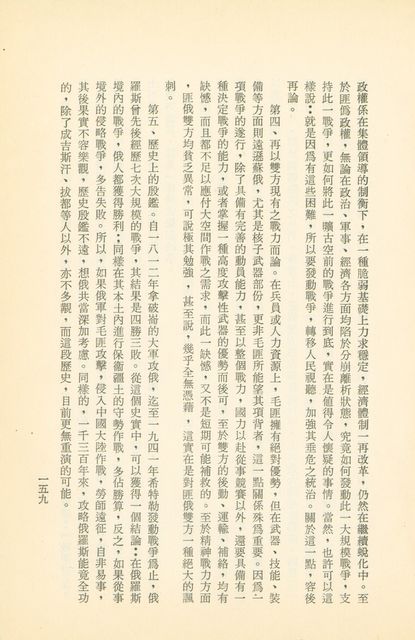 政權係在集體領導的制衡下，在一種脆弱基礎上力求穩定，經濟體制一再改革，仍然在繼續蛻化中。至
於匪僞政權，無論在政治、軍事、經濟各方面均陷於分崩離析狀態，究竟如何發動此一大規模戰爭，支
持此一戰爭，更如何將此一曠古空前的戰爭進行到底，實在是値得令人懷疑的事情。當然，也許可以這
樣說：就是因爲有這些困難，所以要發動戰爭，轉移人民視聽，加強其垂危之統治。關於這一點，容後
再論。
第四、再以雙方現有之戰力而論。在兵員或人力資源上，毛匪擁有絕對優勢，但在武器、技能、裝
備等方面則遠遜蘇俄，尤其是核子武器部份，更非毛匪所能望其項背者，這一點關係殊爲重要。因爲一
項戰爭的遂行，除了具備有完善的動員能力，甚至以整個戰力，國力以赴從事競賽以外，還要具備有一
種決定戰爭的能力，或者掌握一種高度攻擊性武器的優勢而後可，至於雙方的後勤、運輸、補給，均有
缺憾，而且都不足以應付大空間作戰之需求，而此一缺憾，又不是短期可能補救的。至於精神戰力方面
，匪俄雙方均貧乏異常，可說極其勉強，甚至說，幾乎全無憑藉，這實在是對匪俄雙方一種絕大的諷
刺。
第五、歷史上的殷鑑。自一八一二年拿破崙的大軍攻俄，迄至一九四一年希特勒發動戰爭爲止，俄
羅斯曾先後經歷七次大規模的戰爭，其結果是四勝三敗。從這個史實中，可以獲得一個結論：在俄羅斯
境內的戰爭，俄人都獲得勝利；同樣在其本土內進行保衞疆土的守勢作戰，多佔勝算，反之，如果從事
境外的侵略戰爭，多吿失敗。所以，如果俄軍對毛匪攻擊，侵入中國大陸作戰，勞師遠征，自非易事，
其後果實不容樂觀，歷史殷鑑不遠，想俄共當深加考慮。同樣的，一千三百年來，攻略俄羅斯能竟全功
的，除了成吉斯汗、拔都等人以外，亦不多觀，而這段歷史，目前更無重演的可能。
一五九